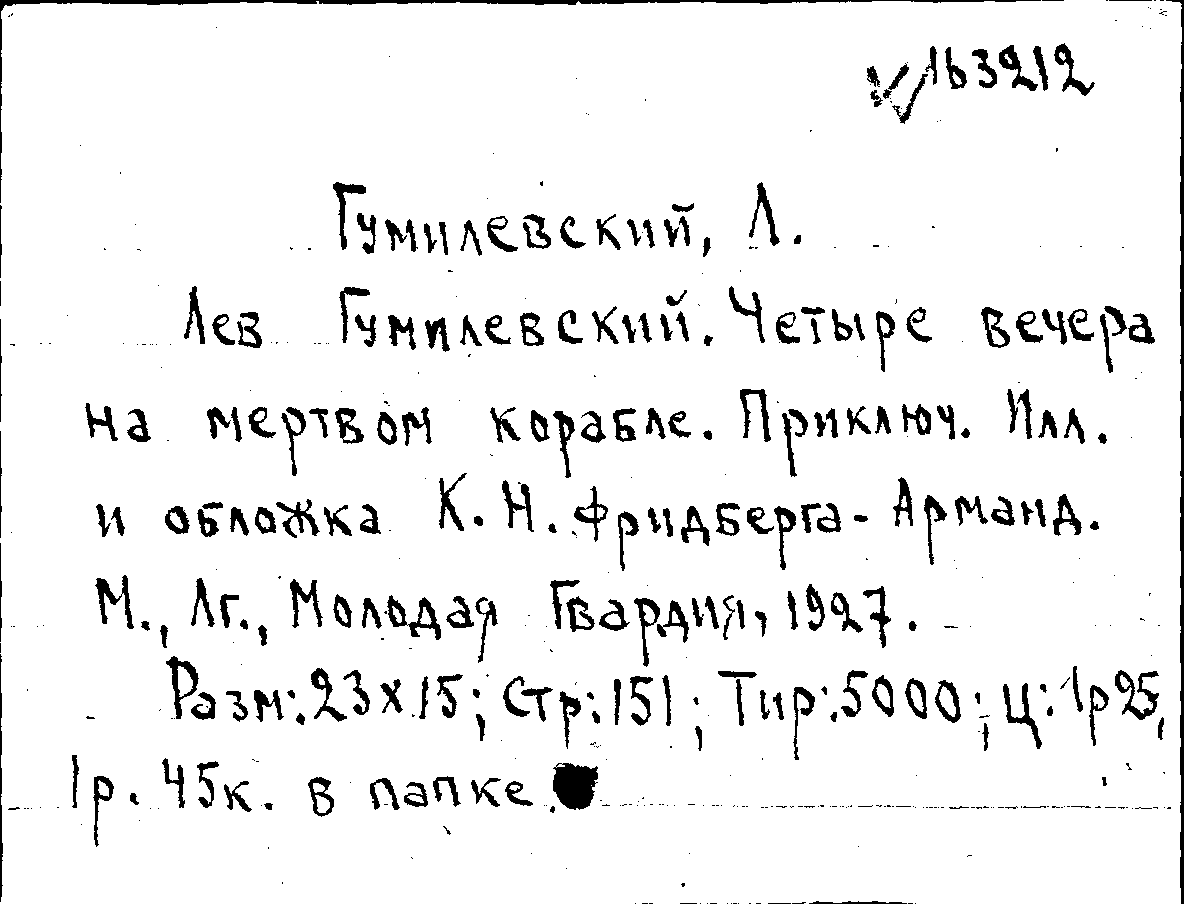 163212
Гумилевский, Л.
Лев Гумилевский. Четыре вечера
на мертвом корабле. Приключ. Илл.
и обложка К. Н. Фридберга-Арманд.
М., Лг., Молодая Гвардия, 1927.
Разм: 23х15; Стр: 151; Тир: 5000; Ц: 1р 25,
1р. 45к. в папке.